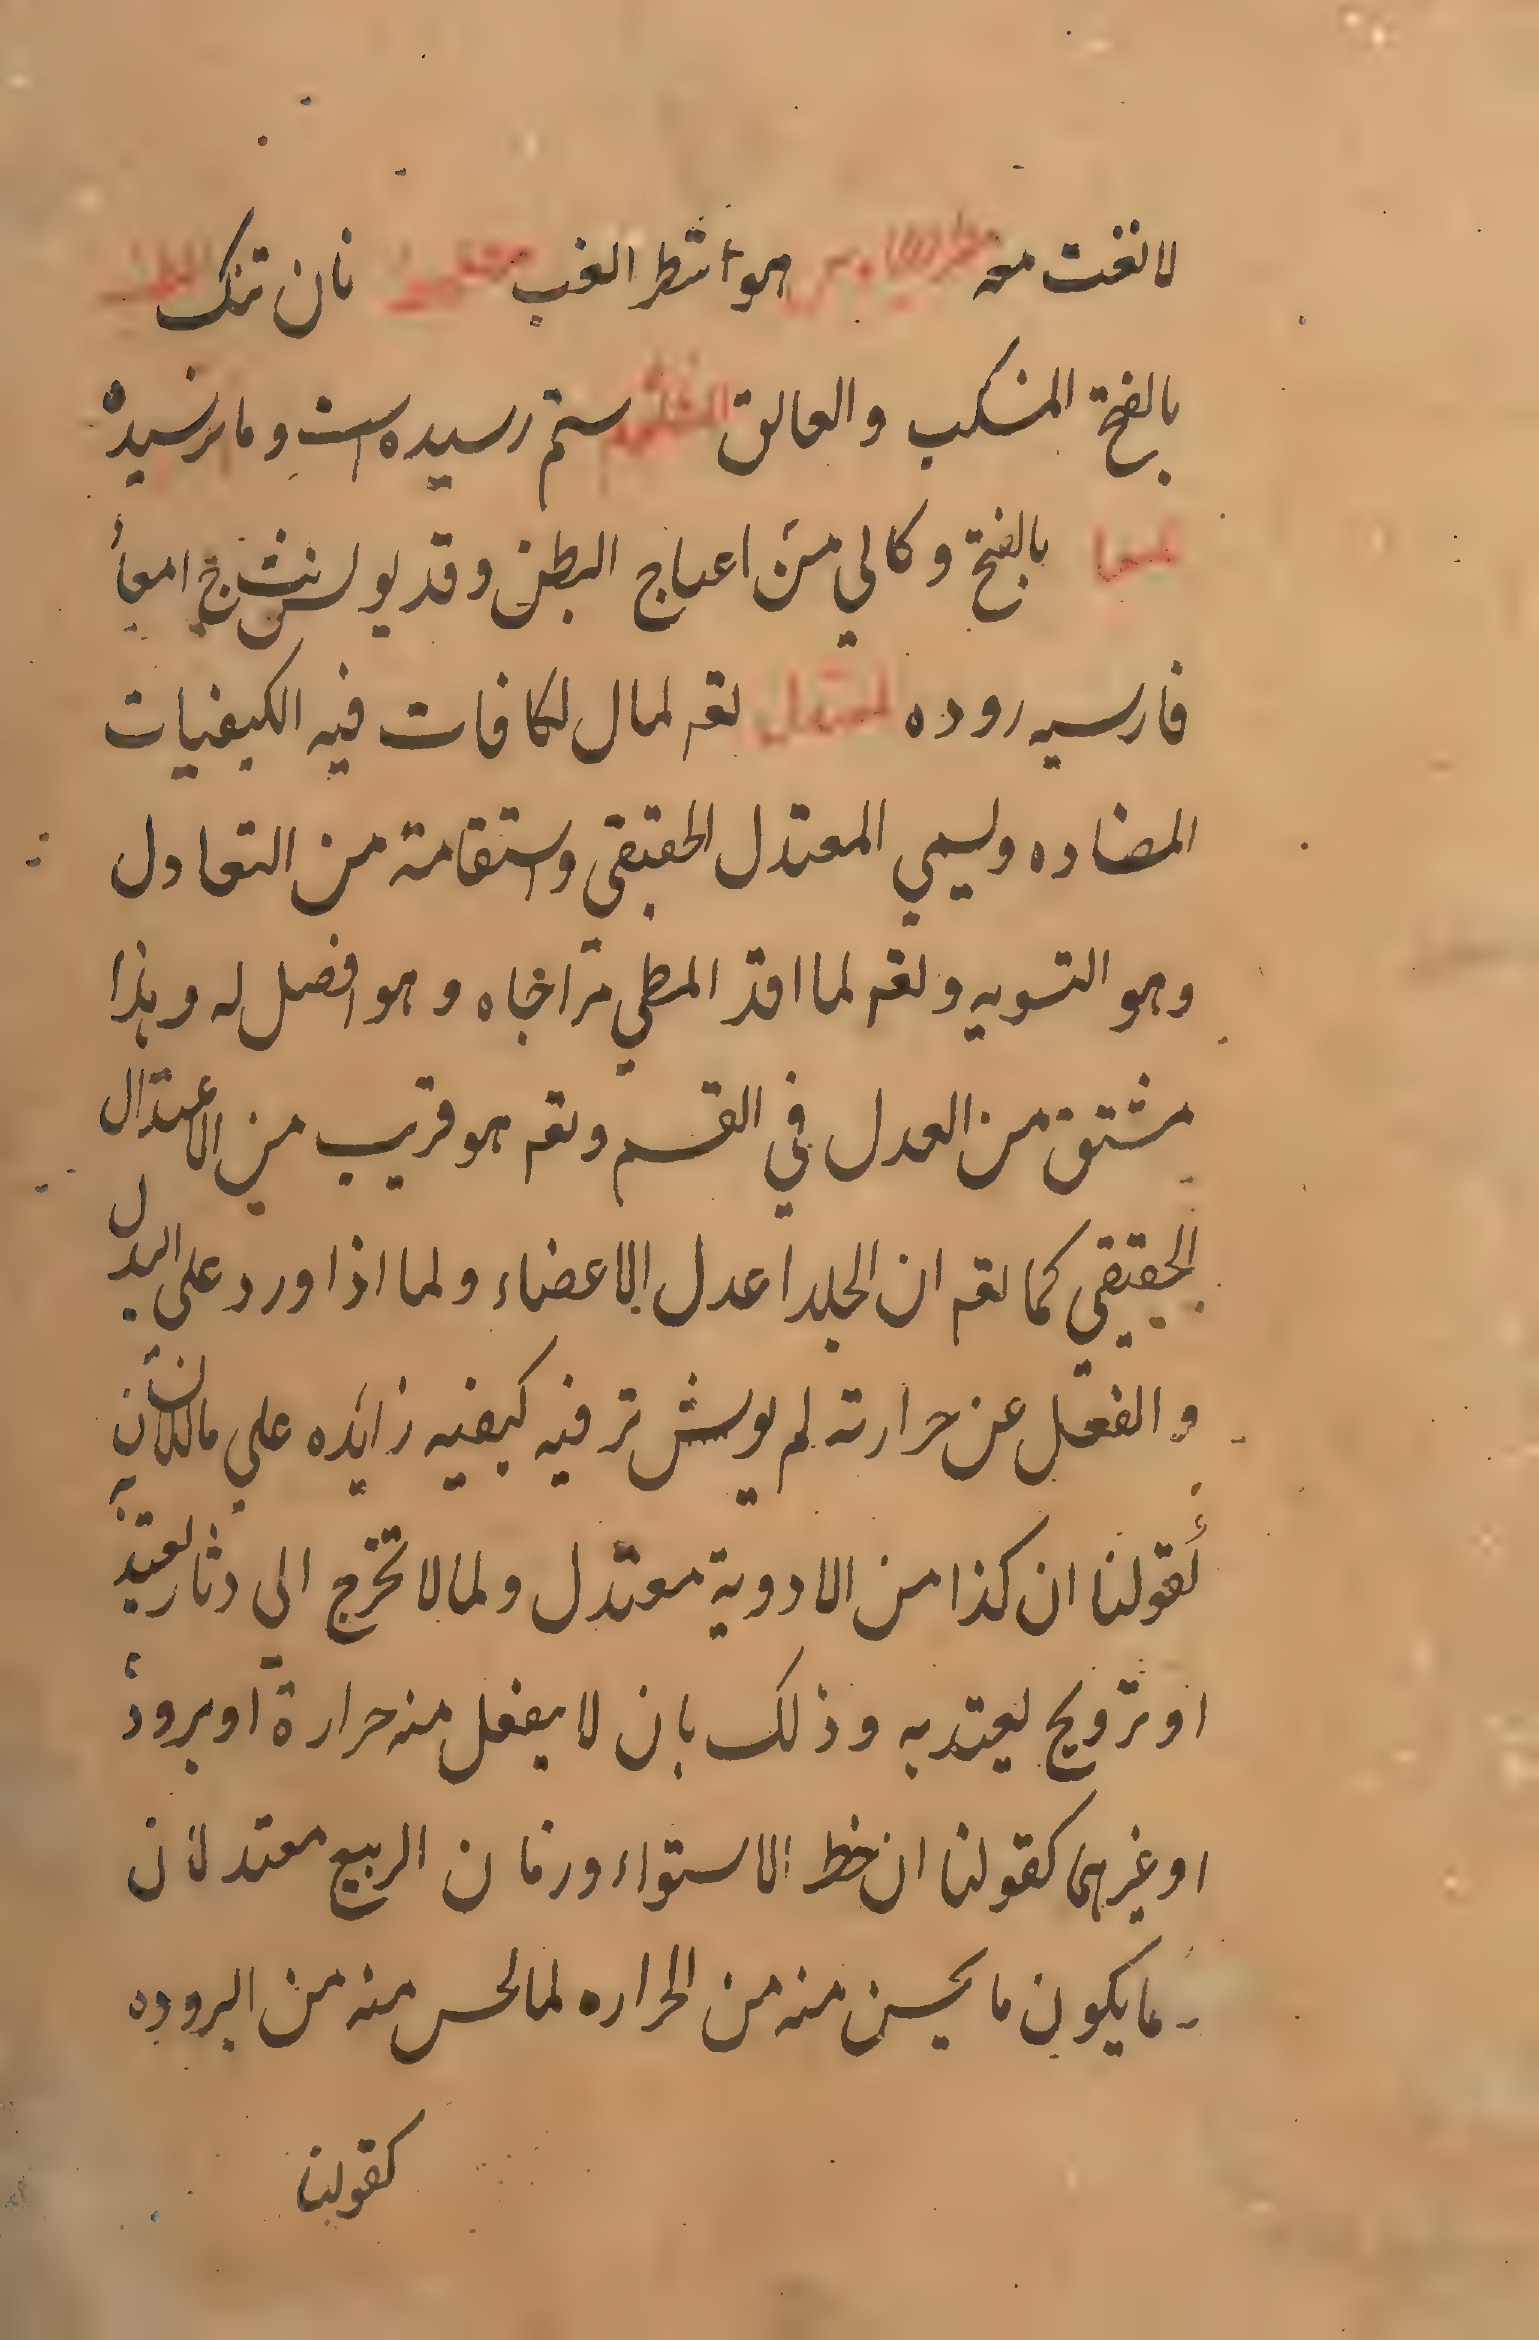 لا نفت معه هو اشطر الغب نان تنك
بالفتح المنكب والعالق ستم رسيده است و مارسيده
معا بالفتح و كالي من اعباج البطن وقد يونس نث ج امعأ
فارسيه روده لقم لمال لكافات فيه الكيفيات
المضاده وليسمي المعتدل الحقيقي واستقامة من التعادل
وهو التسويه ولقم لما افد المطي مزاجاه وهو افضل له وهذا
مشتق من العدل في القسم ولقم هو قريب من الاعتدال
الحقيقي كما لقم ان الجلد اعدل الاعضاء ولما اذا ورد على البدل
والفعل عن حرارته لم يوش تر فيه كيفيه زايده علي ما للان
لقولنا ان كذا من الادوية معتدل ولما لا تخرج الى دثار لعتد
او ترويح ليعتد به وذلك بان لا ينفعل منه حرارة او برودة
او غيرهما كقولنا ان خط الاستواء وزمان الربيع معتدلان
ما يكون ما يحسن منه من الحراره لما لحس منه من البروده
كقولنا